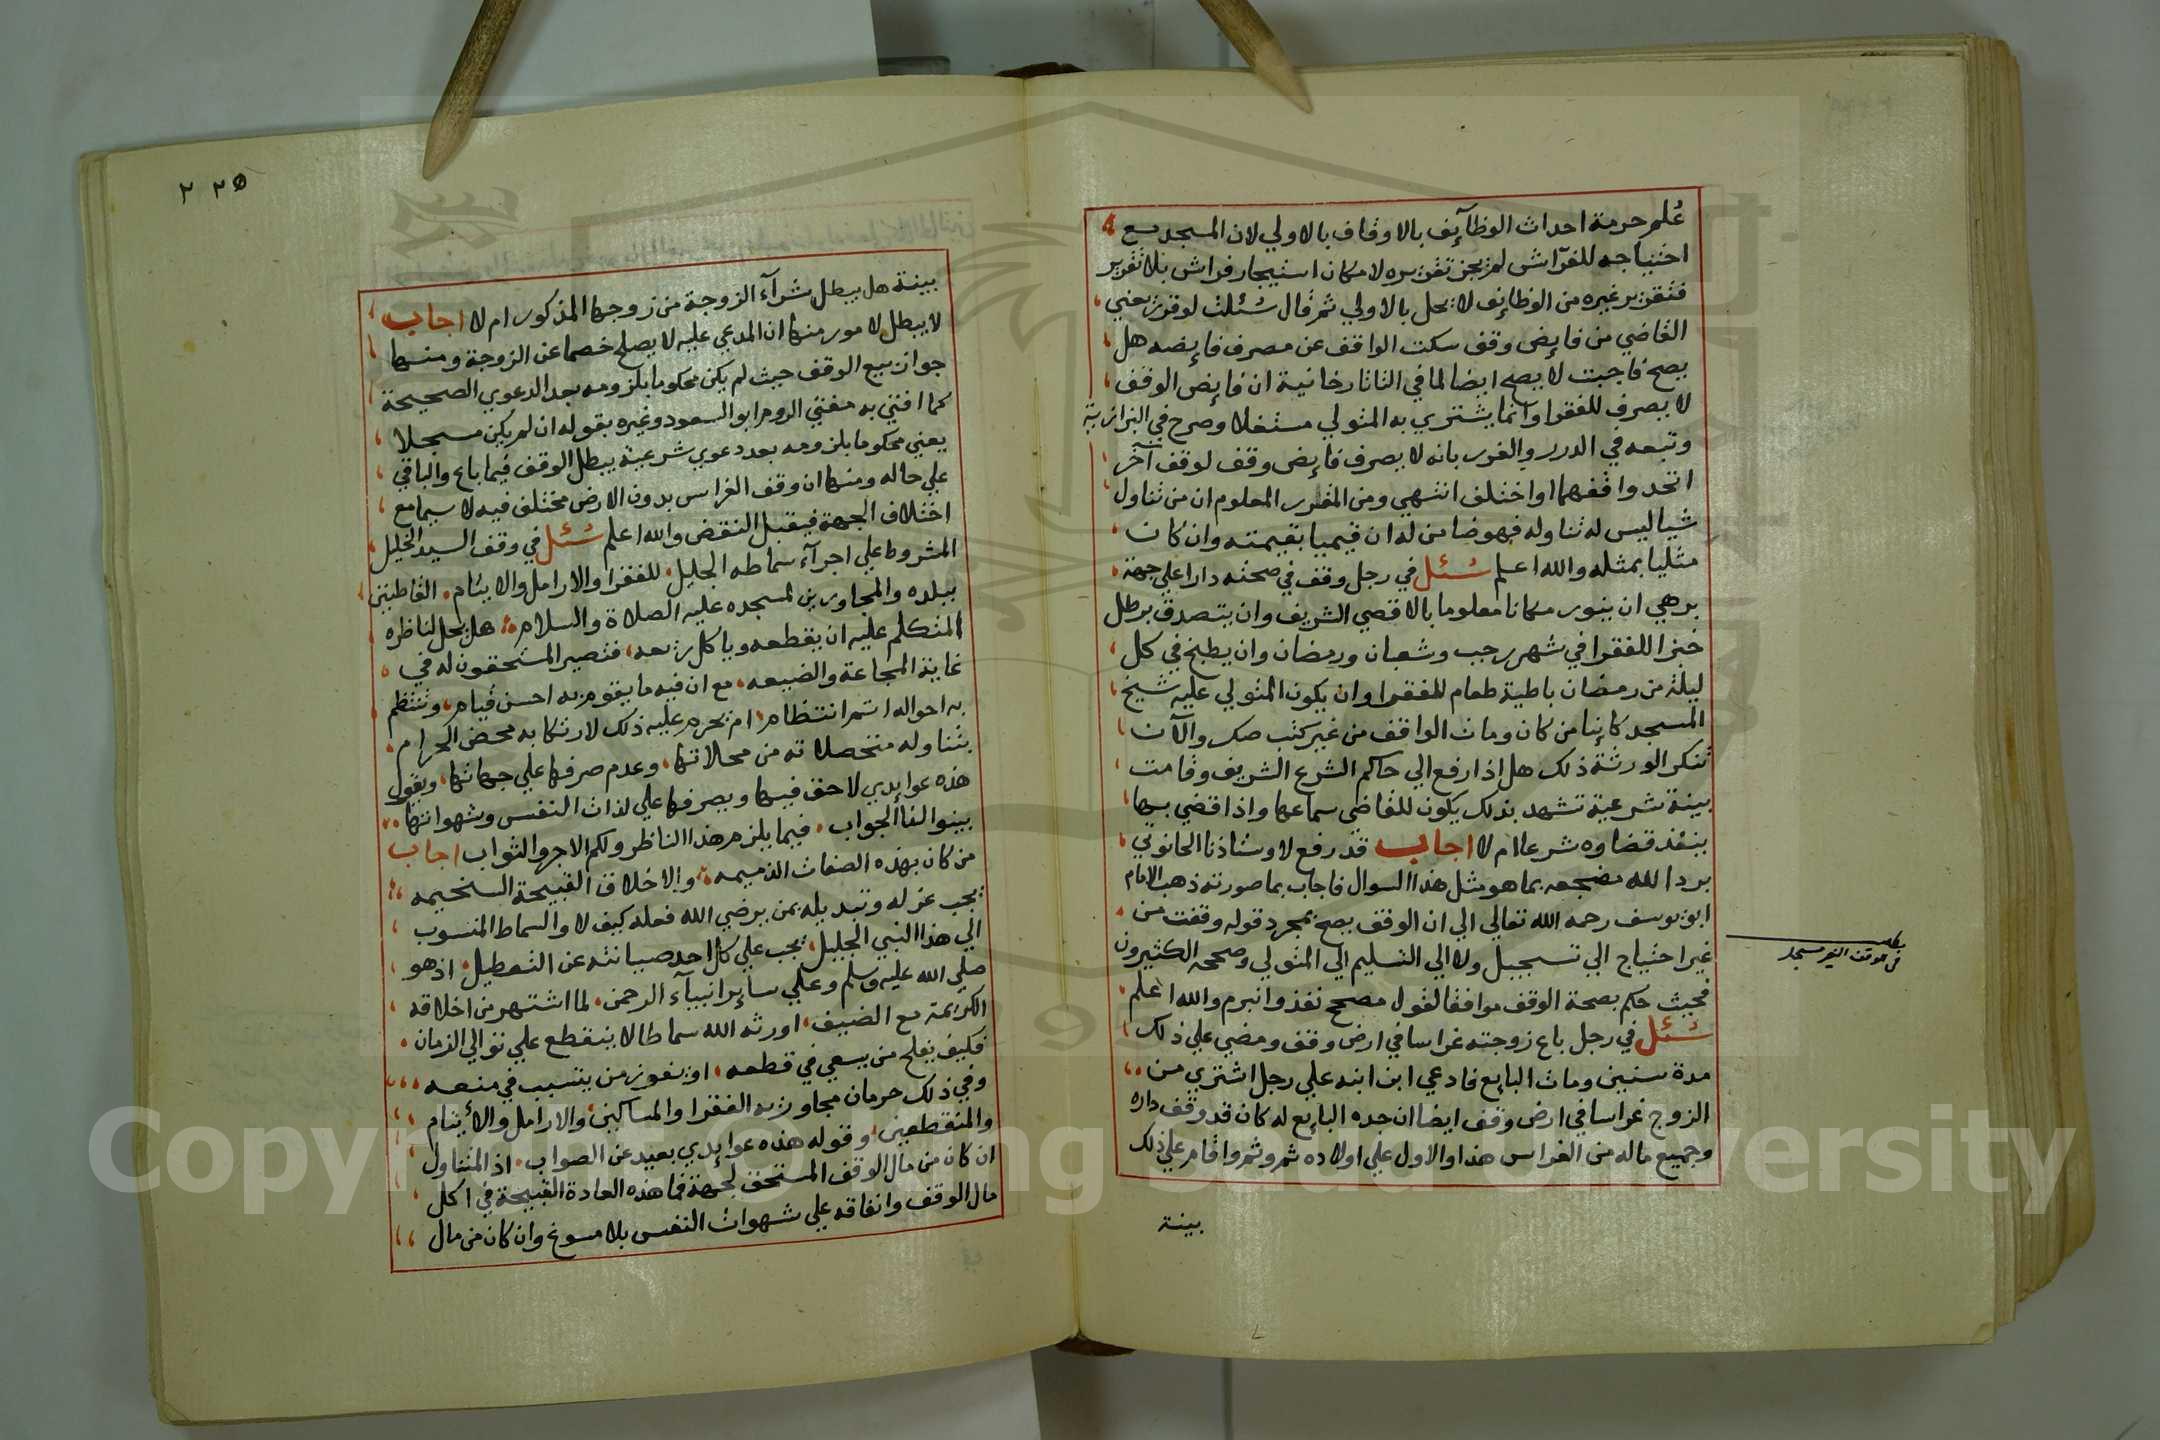 علم حرمة احداث الوظآيف بالاوقاف بالاولي لان المسجد مع
احتياجه للفراش لم يجز تقريره لامكان استيجار فراش بلا تقرير
فتقرير غيره من الوظايف لا يحل بالاولي ثم قال سئلت لو قرر يعني
القاضي من فايض وقف سكت الواقف عن مصرف فايضه هل
يصح فاجبت لا يصح ايضا لما في التاتارخانية ان فايض الوقف
لا يصرف للفقرا وانما يشتري به المتولي مستغلا وصرح في البزازية
وتبعه في الدرر والغرر بانه لا يصرف فايض وقف لوقف آخر
اتحد واقفهما او اختلف انتهي ومن المقرر المعلوم ان من تناول
شيا ليس له تناوله فهو ضامن له ان قيميا بقيمته وان كان
مثليا بمثله والله اعلم سئل في رجل وقف في صحته دارا علي جهة
بر هي ان ينور مكانا معلوما بالاقصي الشريف وان يتصدق برطل
خبز اللفقرا في شهر رجب وشعبان ورمضان وان يطبخ في كل
ليلة من رمضان باطية طعام للفقرا وان يكون المتولي عليه شيخ
المسجد كاينا من كان ومات الواقف من غير كتب صك والآن
تنكر الورثة ذلك هل اذا رفع الي حاكم الشرع الشريف وقامت
بينة شرعية تشهد بذلك يكون للقاضي سماعها واذا قضي بها
ينفذ قضاوه شرعا ام لا اجاب قد رفع لاوستاذنا الحانوتي
برد الله مضجعه بما هو مثل هذا السوال فاجاب بما صورته ذهب الامام
ابو يوسف رحمه الله تعالي الي ان الوقف يصح بمجرد قوله وقفت من
غير احتياج الي تسجيل ولا الي التسليم الي المتولي وصححه الكثيرون
فحيث حكم بصحة الوقف موافقا لقول مصحح نفذ وانبرم والله اعلم
سئل في رجل باع زوجته غراسا في ارض وقف ومضي علي ذلك
مدة سنين ومات البايع فادعي ابن ابنه علي رجل اشتري من
الزوج غراسا في ارض وقف ايضا ان جده البايع له كان قد وقف داره
وجميع ماله من الغراس هذا والاول علي اولاده ثم وثم واقام علي ذلك
بينة
مطلب
في الوقف الغير مسجل
٢٢٥
بينة هل يبطل شرآء الزوجة من زوجها المذكور ام لا اجاب
لا يبطل لامور منها ان المدعي عليه لا يصلح خصما عن الزوجة ومنها
جواز بيع الوقف حيث لم يكن محكوما بلزومه بعد الدعوي الصحيحة
كما افتي به مفتي الروم ابو السعود وغيره بقوله ان لم يكن مسجلا
يعني محكوما بلزومه بعد دعوي شرعية يبطل الوقف فيما باع والباقي
علي حاله ومنها ان وقف الغراس بدون الارض مختلف فيه لا سيما مع
اختلاف الجهة فيقبل النقض والله اعلم سئل في وقف السيد الخليل
المشروط علي اجرآء سماطه الجليل للفقرا والارامل والايتام القاطنين
ببلده والمجاورين لمسجده عليه الصلاة والسلام هل يحل لناظره
المتكلم عليه ان يقطعه وياكل ريعه فتصير المستحقون له في
غاية المجاعة والضيعه مع ان فيه ما يقوم به احسن قيام وتنتظم
به احواله اتم انتظام ام يحرم عليه ذلك لارتكابه محض الحرام
بتناوله متحصلاته من محالاتها وعدم صرفها علي جهاتها ويقول
هذه عوايدي لا حق فيها ويصرفها علي لذات النفس وشهواتها
بينوا لنا الجواب فيما يلزم هذا الناظر ولكم الاجر والثواب اجاب
من كان بهذه الصفات الذميمه والاخلاق القبيحة السخيمه
يجب عزله وتبديله بمن يرضي الله فعله كيف لا والسماط المنسوب
الي هذا النبي الجليل يجب علي كل احد صيانته عن التعطيل اذ هو
صلي الله عليه وسلم وعلي ساير انبيآء الرحمن لما اشتهر من اخلاقه
الكريمة مع الضيف اورثه الله سماطا لا ينقطع علي توالي الزمان
فكيف يفلح من يسعي في قطعه او يفوز من يتسبب في منعه
وفي ذلك حرمان مجاوريه الفقرا والمساكين والارامل والايتام
والمنقطعين وقوله هذه عوايدي بعيد عن الصواب اذ المتناول
ان كان من مال الوقف المستحق لجهة فما هذه العادة القبيحة في اكل
مال الوقف وانفاقه علي شهوات النفس بلا مسوغ وان كان من مال
Copyright © King Saud University